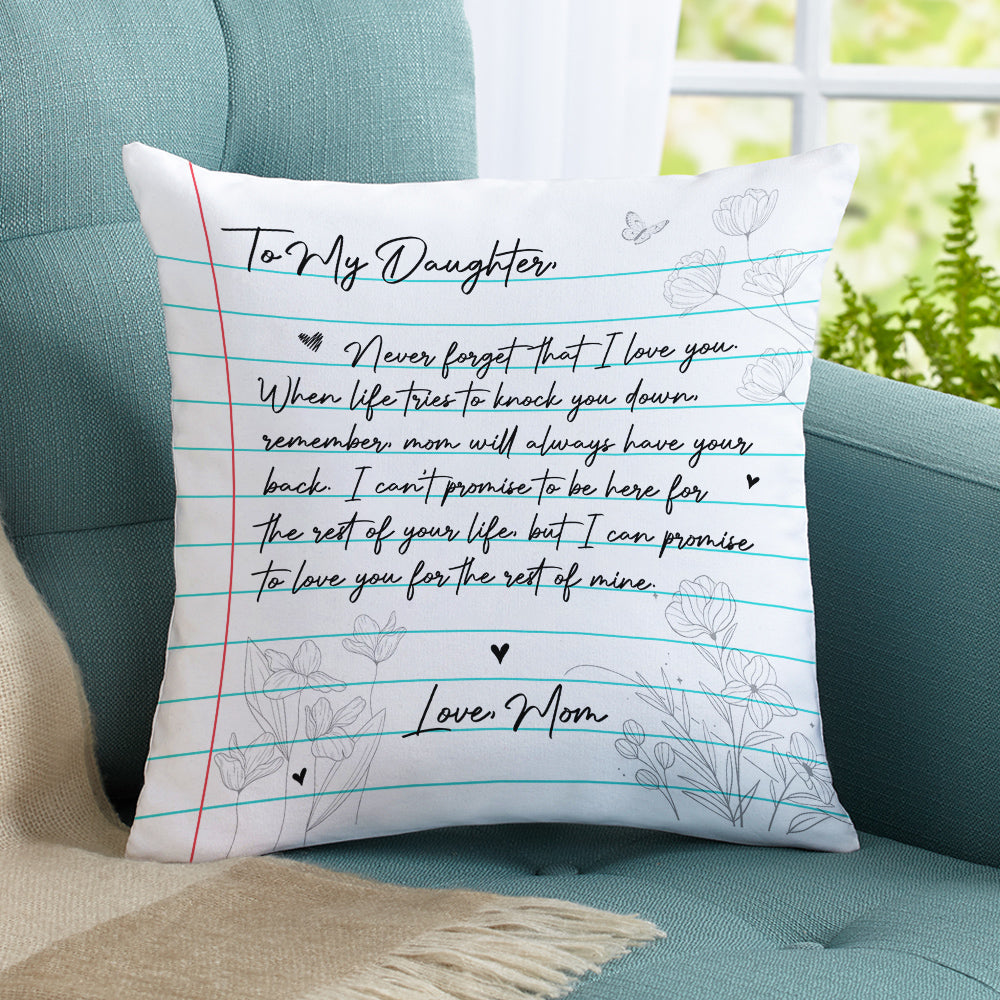 To My Daughter,
Never forget that I love you.
When life tries to knock you down,
remember, mom will always have your
back. I can't promise to be here for
the rest of your life, but I can promise
to love you for the rest of mine.
Love, Mom